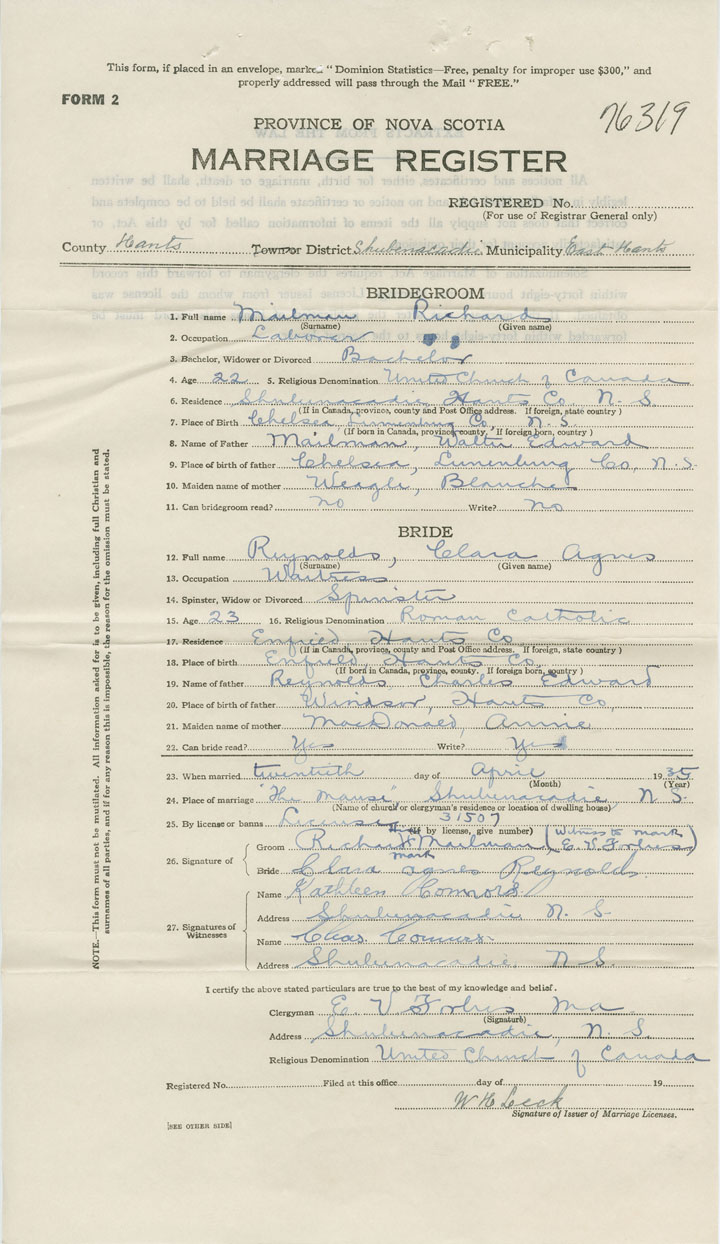 This form, if placed in an envelope, marked "Dominion Statistics—Free, penalty for improper use $300," and
properly addressed will pass through the Mail "FREE."
FORM 2
76319
PROVINCE OF NOVA SCOTIA
MARRIAGE REGISTER
REGISTERED No.
(For use of Registrar General only)
County Hants Town or District Shubenacadie Municipality East Hants
BRIDEGROOM
1. Full name Mailman Richard
(Surname) (Given name)
2. Occupation Laborer
3. Bachelor, Widower or Divorced Bachelor
4. Age 22 5. Religious Denomination United Church of Canada
6. Residence Shubenacadie Hants Co. N. S
(If in Canada, province, county and Post Office address. If foreign, state country)
7. Place of Birth Chelsea Lunenburg Co. N. S.
(If born in Canada, province, county. If foreign born, country)
8. Name of Father Mailman, Walter Edward
9. Place of birth of father Chelsea, Lunenburg Co, N. S.
10. Maiden name of mother Weagle, Blanche
11. Can bridegroom read? no Write? no
BRIDE
12. Full name Reynolds, Clara Agnes
(Surname) (Given name)
13. Occupation Waitress
14. Spinster, Widow or Divorced Spinster
15. Age 23 16. Religious Denomination Roman Catholic
17. Residence Enfield Hants Co
(If in Canada, province, county and Post Office address. If foreign, state country)
18. Place of birth Enfield, Hants Co.
(If born in Canada, province, county. If foreign born, country)
19. Name of father Reynolds Charles Edward
20. Place of birth of father Windsor, Hants Co,
21. Maiden name of mother MacDonald, Annie
22. Can bride read? Yes Write? Yes
23. When married twentieth day of April 1935
(Month) (Year)
24. Place of marriage "The Manse", Shubenacadie N S.
(Name of church or clergyman's residence or location of dwelling house)
25. By license or banns License 31507
(If by license, give number)
26. Signature of
Groom Richard his X mark Mailman (Witness to mark E. V. Forbes)
Bride Clara Agnes Reynolds
27. Signatures of Witnesses
Name Kathleen Connors.
Address Shubenacadie N. S.
Name Chas. Connors.
Address Shubenacadie N. S.
I certify the above stated particulars are true to the best of my knowledge and belief.
Clergyman E. V. Forbes M a
(Signature)
Address Shubenacadie, N. S.
Religious Denomination United Church of Canada
Registered No. Filed at this office day of 19
W H Leck
Signature of Issuer of Marriage Licenses.
[SEE OTHER SIDE]
NOTE.—This form must not be mutilated. All information asked for is to be given, including full Christian and
surnames of all parties, and if for any reason this is impossible, the reason for the omission must be stated.